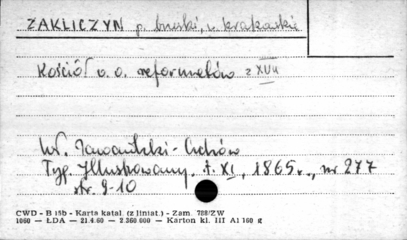 ZAKLICZYN p. brzeski, w. krakowskie
Kościół o. o. reformatów z XVII w
Wł. Jawor
Tyg. Illustrowany, t. XI, 1865 r., nr 277
str. 9-10
CWD - B 15b - Karta katal. (z liniat.) - Zam. 788/ZW
1060 — ŁDA — 21.4.60 — 2.360.000 — Karton kl. III A1 160 g